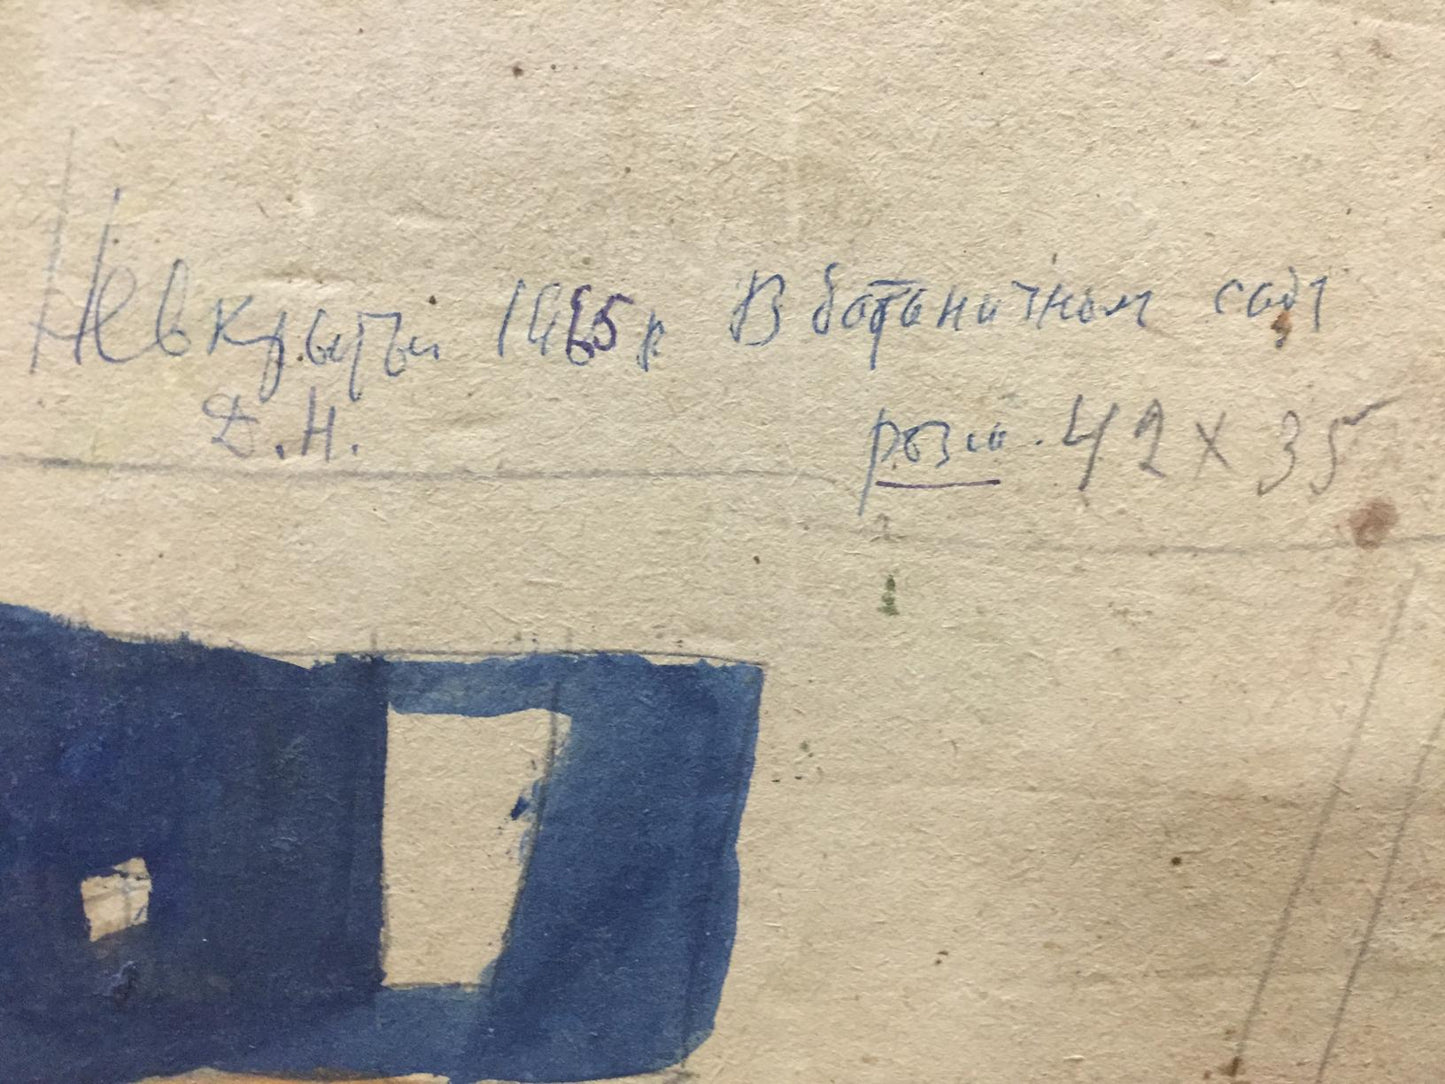 Невкрытый 1965 г. В ботаничном саду
Д.Н. разм. 42 х 35